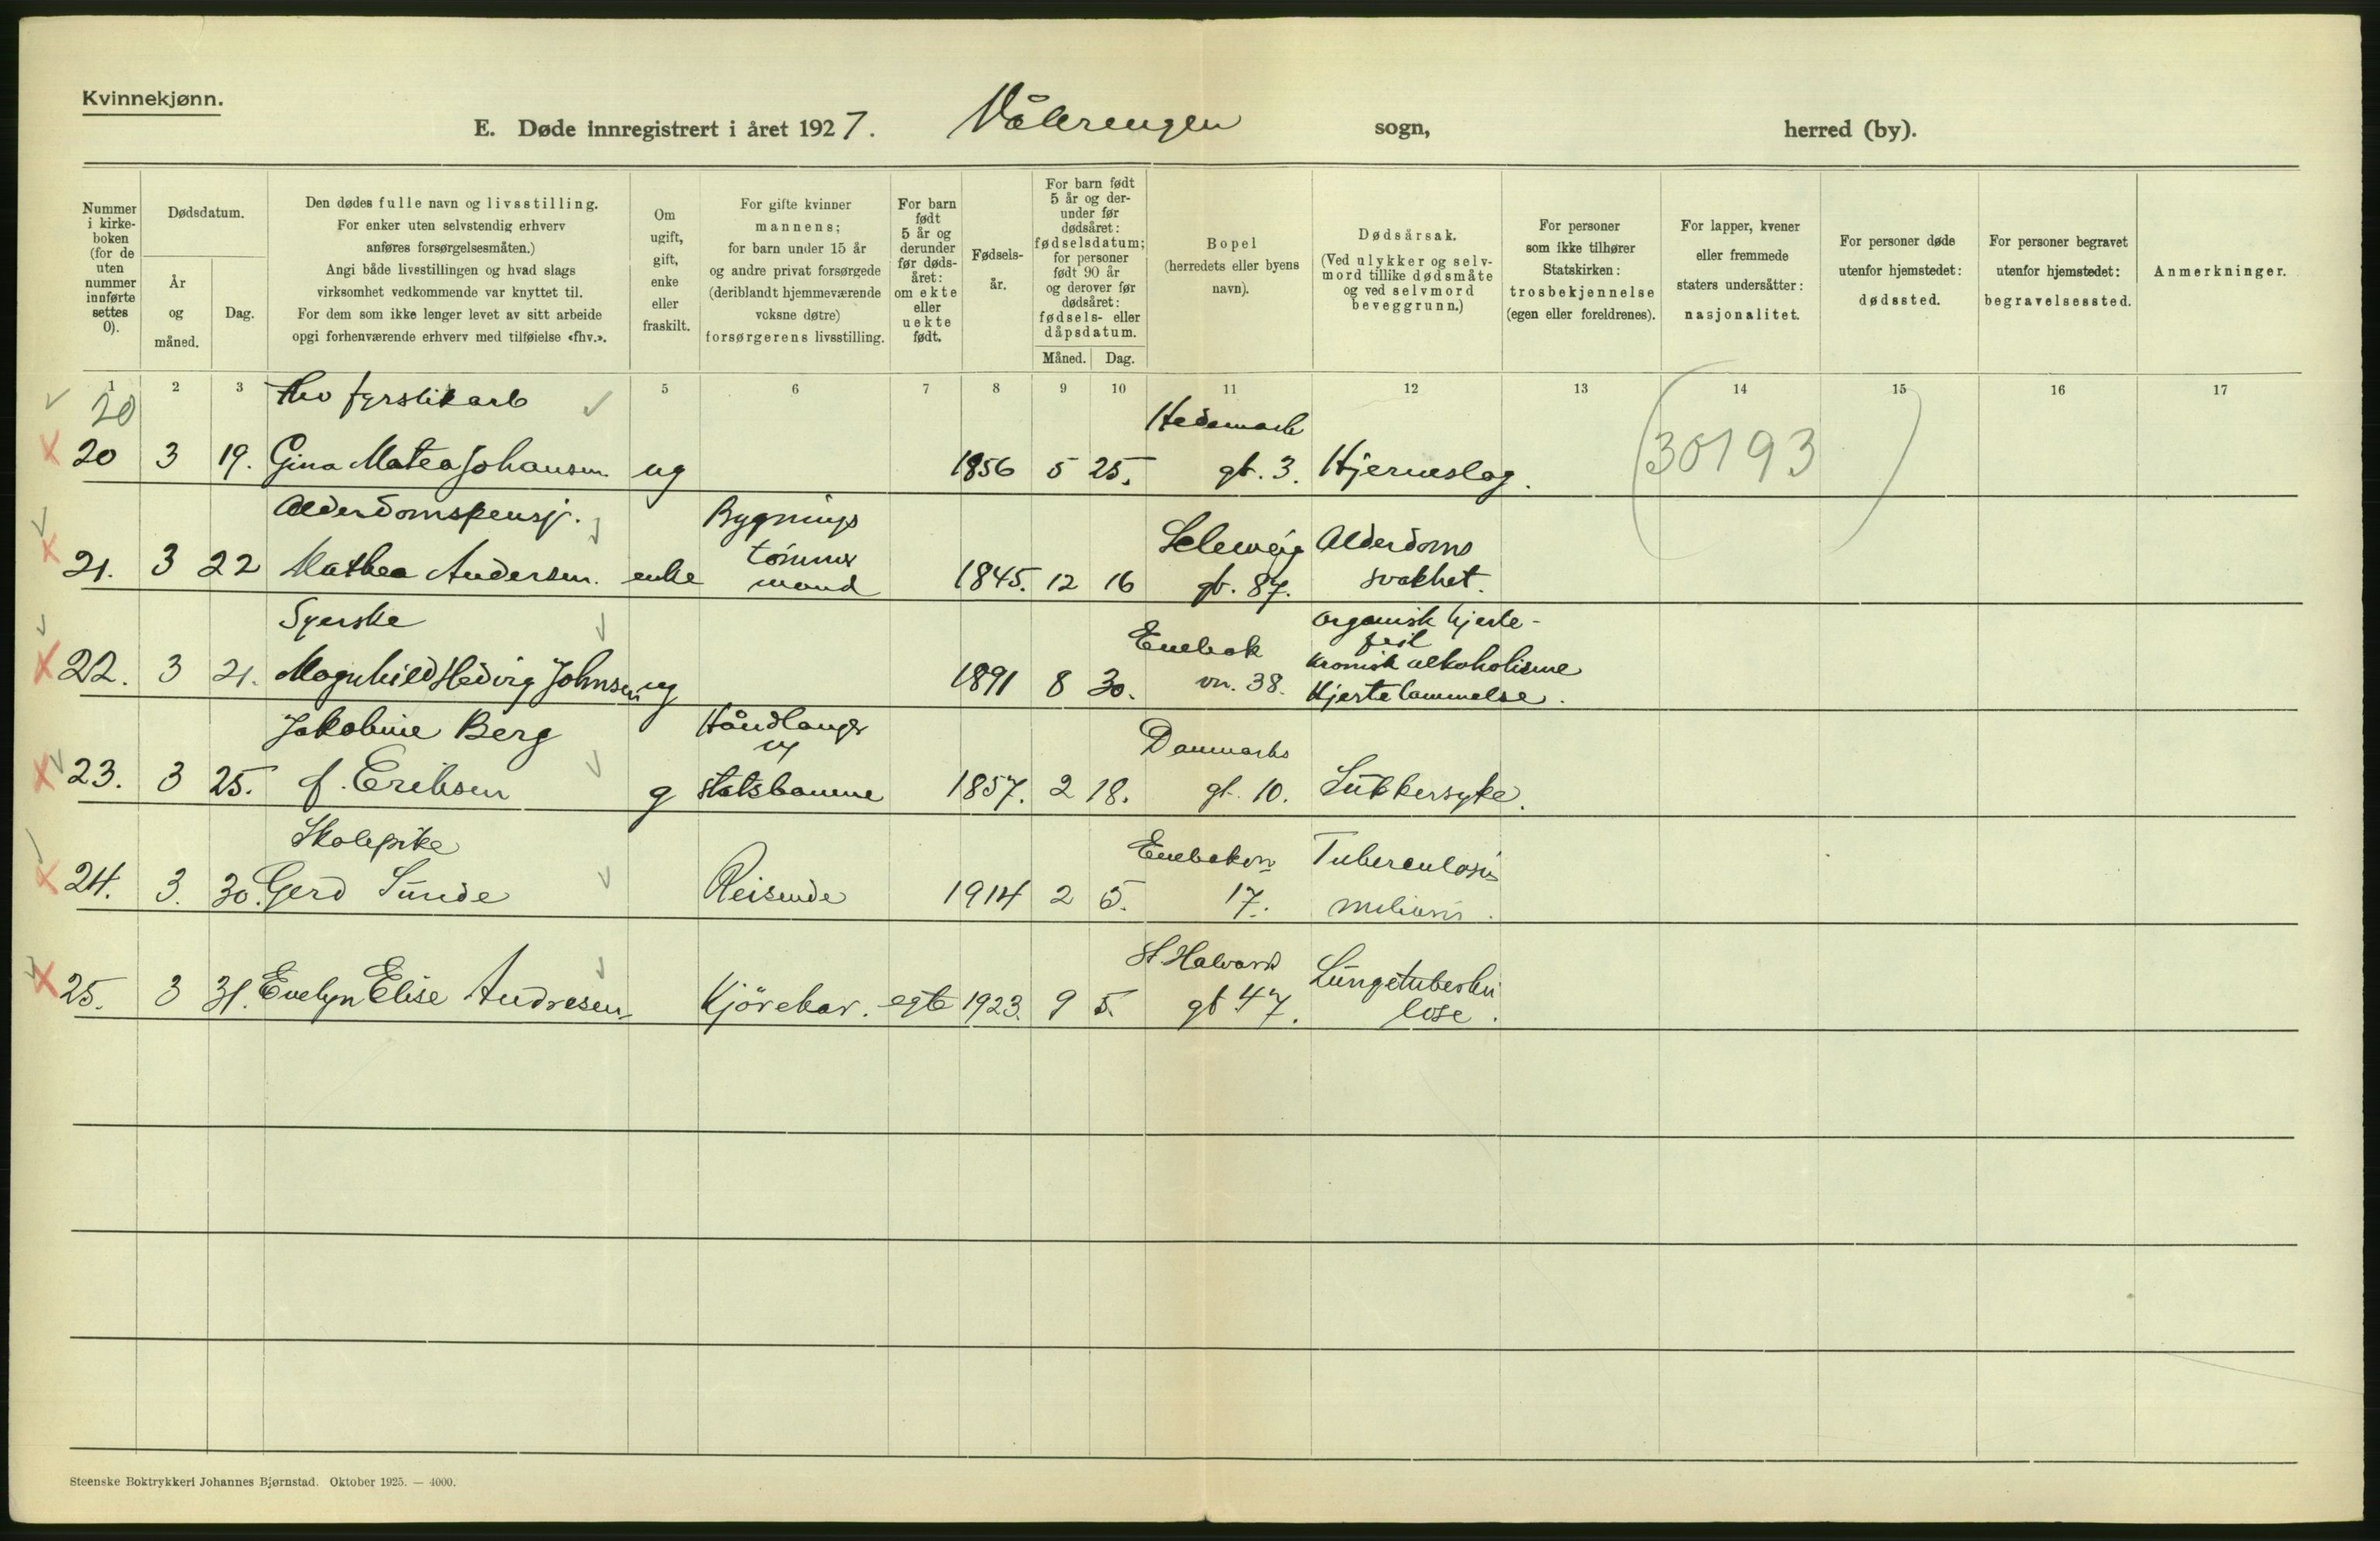 Kvinnekjønn.
E. Døde innregistrert i året 1927. Vålerengen sogn, herred (by).
Nummer i kirke-boken (for de uten nummer innførte settes 0).
Dødsdatum.
År og måned.
Dag.
Den dødes fulle navn og livsstilling.
For enker uten selvstendig erhverv
anføres forsørgelsesmåten.)
Angi både livsstillingen og hvad slags
virksomhet vedkommende var knyttet til.
For dem som ikke lenger levet av sitt arbeide
opgi forhenværende erhverv med tilføielse «fhv.».
Om ugift, gift, enke eller fraskilt.
For gifte kvinner
mannens;
for barn under 15 år
og andre privat forsørgede
(deriblandt hjemmeværende
voksne døtre)
forsørgerens livsstilling.
For barn født 5 år og derunder før døds-året: om ekte eller uekte født.
Fødsels-år.
For barn født 5 år og der-under før dødsåret: fødselsdatum; for personer født 90 år og derover før dødsåret: fødsels- eller dåpsdatum.
Måned. Dag.
Bopel
(herredets eller byens
navn).
Dødsårsak.
(Ved ulykker og selv-
mord tillike dødsmåte
og ved selvmord
beveggrunn.)
For personer
som ikke tilhører
Statskirken:
trosbekjennelse
(egen eller foreldrenes).
For lapper, kvener
eller fremmede
staters undersåtter:
nasjonalitet.
For personer døde
utenfor hjemstedet:
dødssted.
For personer begravet
utenfor hjemstedet:
begravelsessted.
Anmerkninger.
1 2 3 5 6 7 8 9 10 11 12 13 14 15 16 17
20 fhv fyrstikarb Hedemark
20 3 19. Gina Matea Johansen ug 1856 5 25. gt. 3. Hjerneslag. (30193)
Alderdomspensj. Bygnings
tømmer Alderdoms
21. 3 22 Mathea Andersen. enke mand 1845. 12 16 gt. 87. svakhet.
Syerske organisk hjerte-
feil
Enebak kronisk alkoholisme
22. 3 21. Magnhild Hedvig Johnsen ug 1891 8 30. vn. 38. Hjertelammelse.
Jakobine Berg Håndlanger Danmarks
v
23. 3 25. f. Eriksen g statsbanene 1857. 2 18. gt. 10. Sukkersyke.
Skolepike Enebakvn Tuberculosis
24. 3. 30. Gerd Sunde Reisende 1914 2 5. 17. miliaris.
St Halvards Lungetuberku
25. 3 31. Evelyn Elise Andresen Kjørekar. egte 1923. 9 5. gt 47. lose.
Steenske Boktrykkeri Johannes Bjørnstad. Oktober 1925. — 4000.